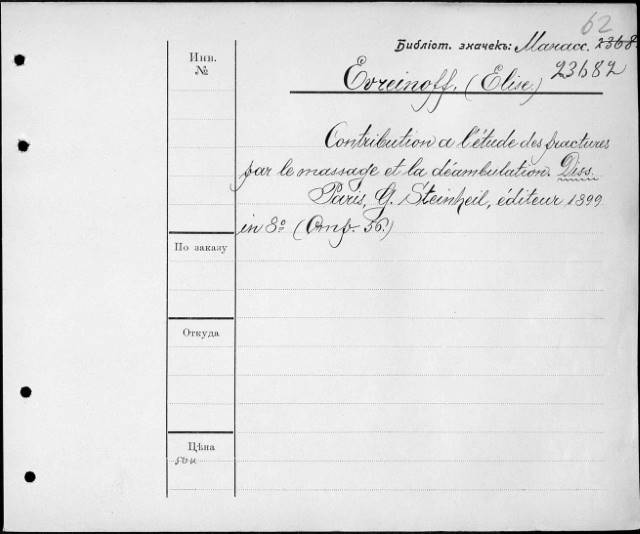 62
Библіот. значекъ: Манасс. 2368
23682
Инв.
№
Evreinoff. (Elise.)
Contribution a l'étude des fractures
par le massage et la déambulation. Diss.
Paris, G. Steinheil, éditeur 1899
in 8º (Стр. 56.)
По заказу
Откуда
Цѣна